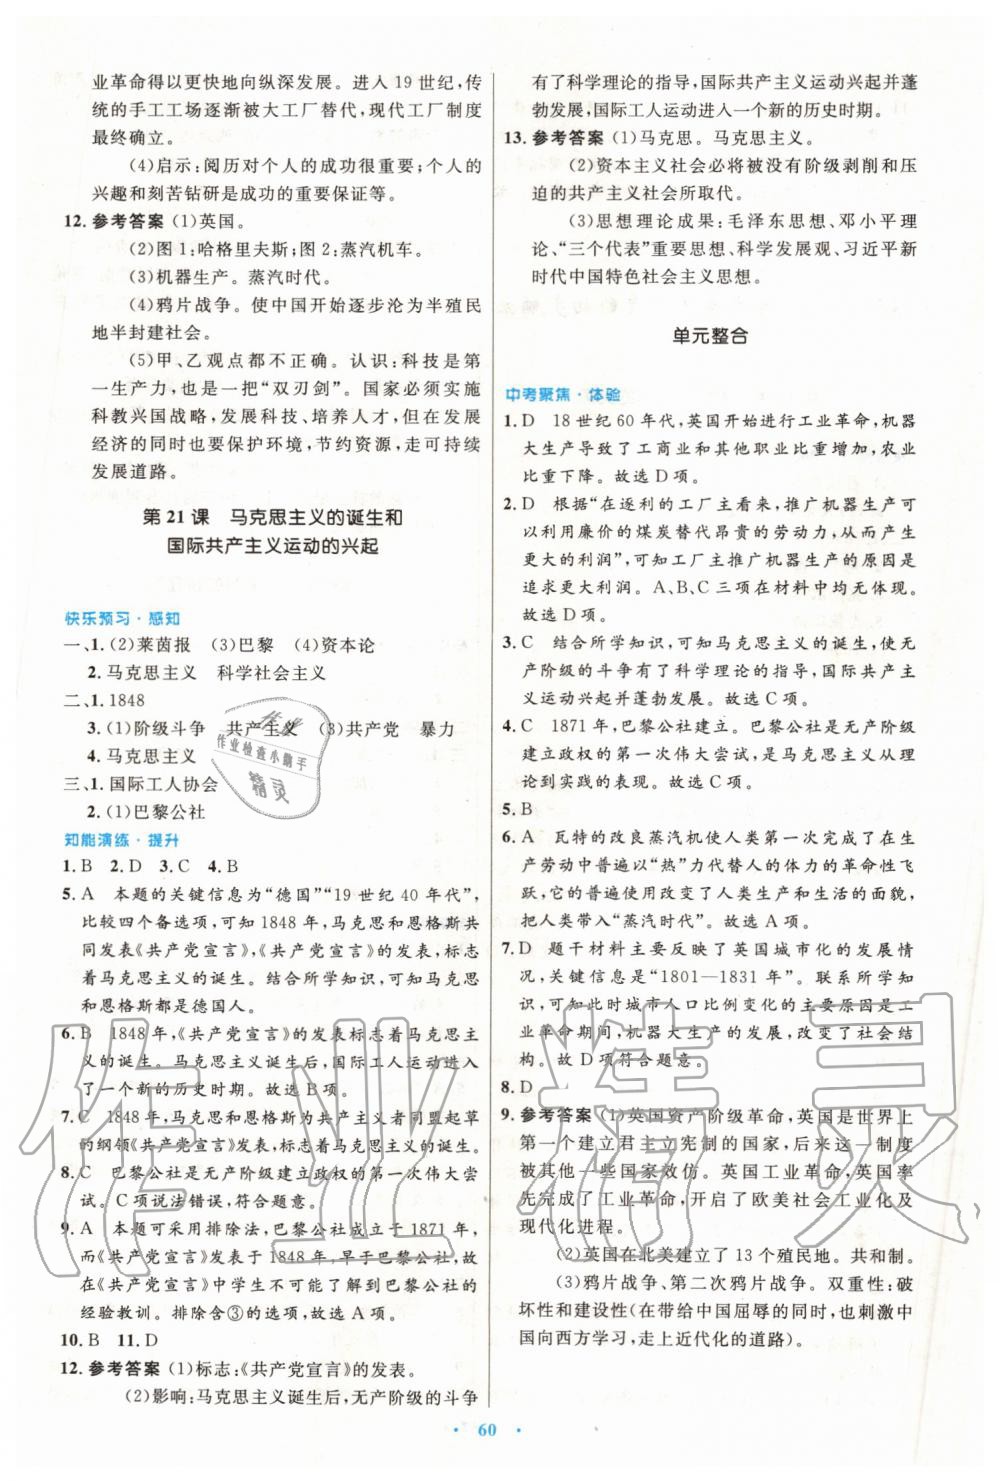 业革命得以更快地向纵深发展。进入19世纪,传
统的手工工场逐渐被大工厂替代,现代工厂制度
最终确立。
(4)启示:阅历对个人的成功很重要;个人的
兴趣和刻苦钻研是成功的重要保证等。
12. 参考答案 (1)英国。
(2)图1:哈格里夫斯;图2:蒸汽机车。
(3)机器生产。蒸汽时代。
(4)鸦片战争。使中国开始逐步沦为半殖民
地半封建社会。
(5)甲、乙观点都不正确。认识:科技是第
一生产力,也是一把“双刃剑”。国家必须实施
科教兴国战略,发展科技、培养人才,但在发展
经济的同时也要保护环境,节约资源,走可持续
发展道路。
第21课 马克思主义的诞生和
国际共产主义运动的兴起
快乐预习·感知
一、1.(2)莱茵报 (3)巴黎 (4)资本论
2. 马克思主义 科学社会主义
二、1. 1848
3.(1)阶级斗争 共产主义 (3)共产党 暴力
4. 马克思主义
三、1. 国际工人协会
2.(1)巴黎公社
知能演练·提升
1. B 2. D 3. C 4. B
5. A 本题的关键信息为“德国”“19世纪40年代”,
比较四个备选项,可知1848年,马克思和恩格斯共
同发表《共产党宣言》,《共产党宣言》的发表,标志
着马克思主义的诞生。结合所学知识,可知马克思
和恩格斯都是德国人。
6. B 1848年,《共产党宣言》的发表标志着马克思主
义的诞生。马克思主义诞生后,国际工人运动进入
了一个新的历史时期。故选B项。
7. C 1848年,马克思和恩格斯为共产主义者同盟起草
的纲领《共产党宣言》发表,标志着马克思主义的诞生。
8. C 巴黎公社是无产阶级建立政权的第一次伟大尝
试。C项说法错误,符合题意。
9. A 本题可采用排除法,巴黎公社成立于1871年,
而《共产党宣言》发表于1848年,早于巴黎公社,故
在《共产党宣言》中学生不可能了解到巴黎公社的
经验教训。排除含③的选项,故选A项。
10. B 11. D
12. 参考答案 (1)标志:《共产党宣言》的发表。
(2)影响:马克思主义诞生后,无产阶级的斗争
有了科学理论的指导,国际共产主义运动兴起并蓬
勃发展,国际工人运动进入一个新的历史时期。
13. 参考答案 (1)马克思。马克思主义。
(2)资本主义社会必将被没有阶级剥削和压
迫的共产主义社会所取代。
(3)思想理论成果:毛泽东思想、邓小平理
论、“三个代表”重要思想、科学发展观、习近平新
时代中国特色社会主义思想。
单元整合
中考聚焦·体验
1. D 18世纪60年代,英国开始进行工业革命,机器
大生产导致了工商业和其他职业比重增加,农业
比重下降。故选D项。
2. D 根据“在逐利的工厂主看来,推广机器生产可
以利用廉价的煤炭替代昂贵的劳动力,从而产生
更大的利润”,可知工厂主推广机器生产的原因是
追求更大利润。A、B、C三项在材料中均无体现。
故选D项。
3. C 结合所学知识,可知马克思主义的诞生,使无
产阶级的斗争有了科学理论的指导,国际共产主
义运动兴起并蓬勃发展。故选C项。
4. C 1871年,巴黎公社建立。巴黎公社是无产阶级
建立政权的第一次伟大尝试,是马克思主义从理
论到实践的表现。故选C项。
5. B
6. A 瓦特的改良蒸汽机使人类第一次完成了在生
产劳动中普遍以“热”力代替人的体力的革命性飞
跃,它的普遍使用改变了人类生产和生活的面貌,
把人类带入“蒸汽时代”。故选A项。
7. D 题干材料主要反映了英国城市化的发展情
况,关键信息是“1801—1831年”。联系所学知
识,可知此时城市人口比例变化的主要原因是工
业革命期间,机器大生产的发展,改变了社会结
构。故D项符合题意。
8. D
9. 参考答案 (1)英国资产阶级革命,英国是世界上
第一个建立君主立宪制的国家,后来这一制度
被其他一些国家效仿。英国工业革命,英国率
先完成了工业革命,开启了欧美社会工业化及
现代化进程。
(2)英国在北美建立了13个殖民地。共和制。
(3)鸦片战争、第二次鸦片战争。双重性:破
坏性和建设性(在带给中国屈辱的同时,也刺激中
国向西方学习,走上近代化的道路)。
作业精灵
作业
作业检查小助手
精灵
· 60 ·